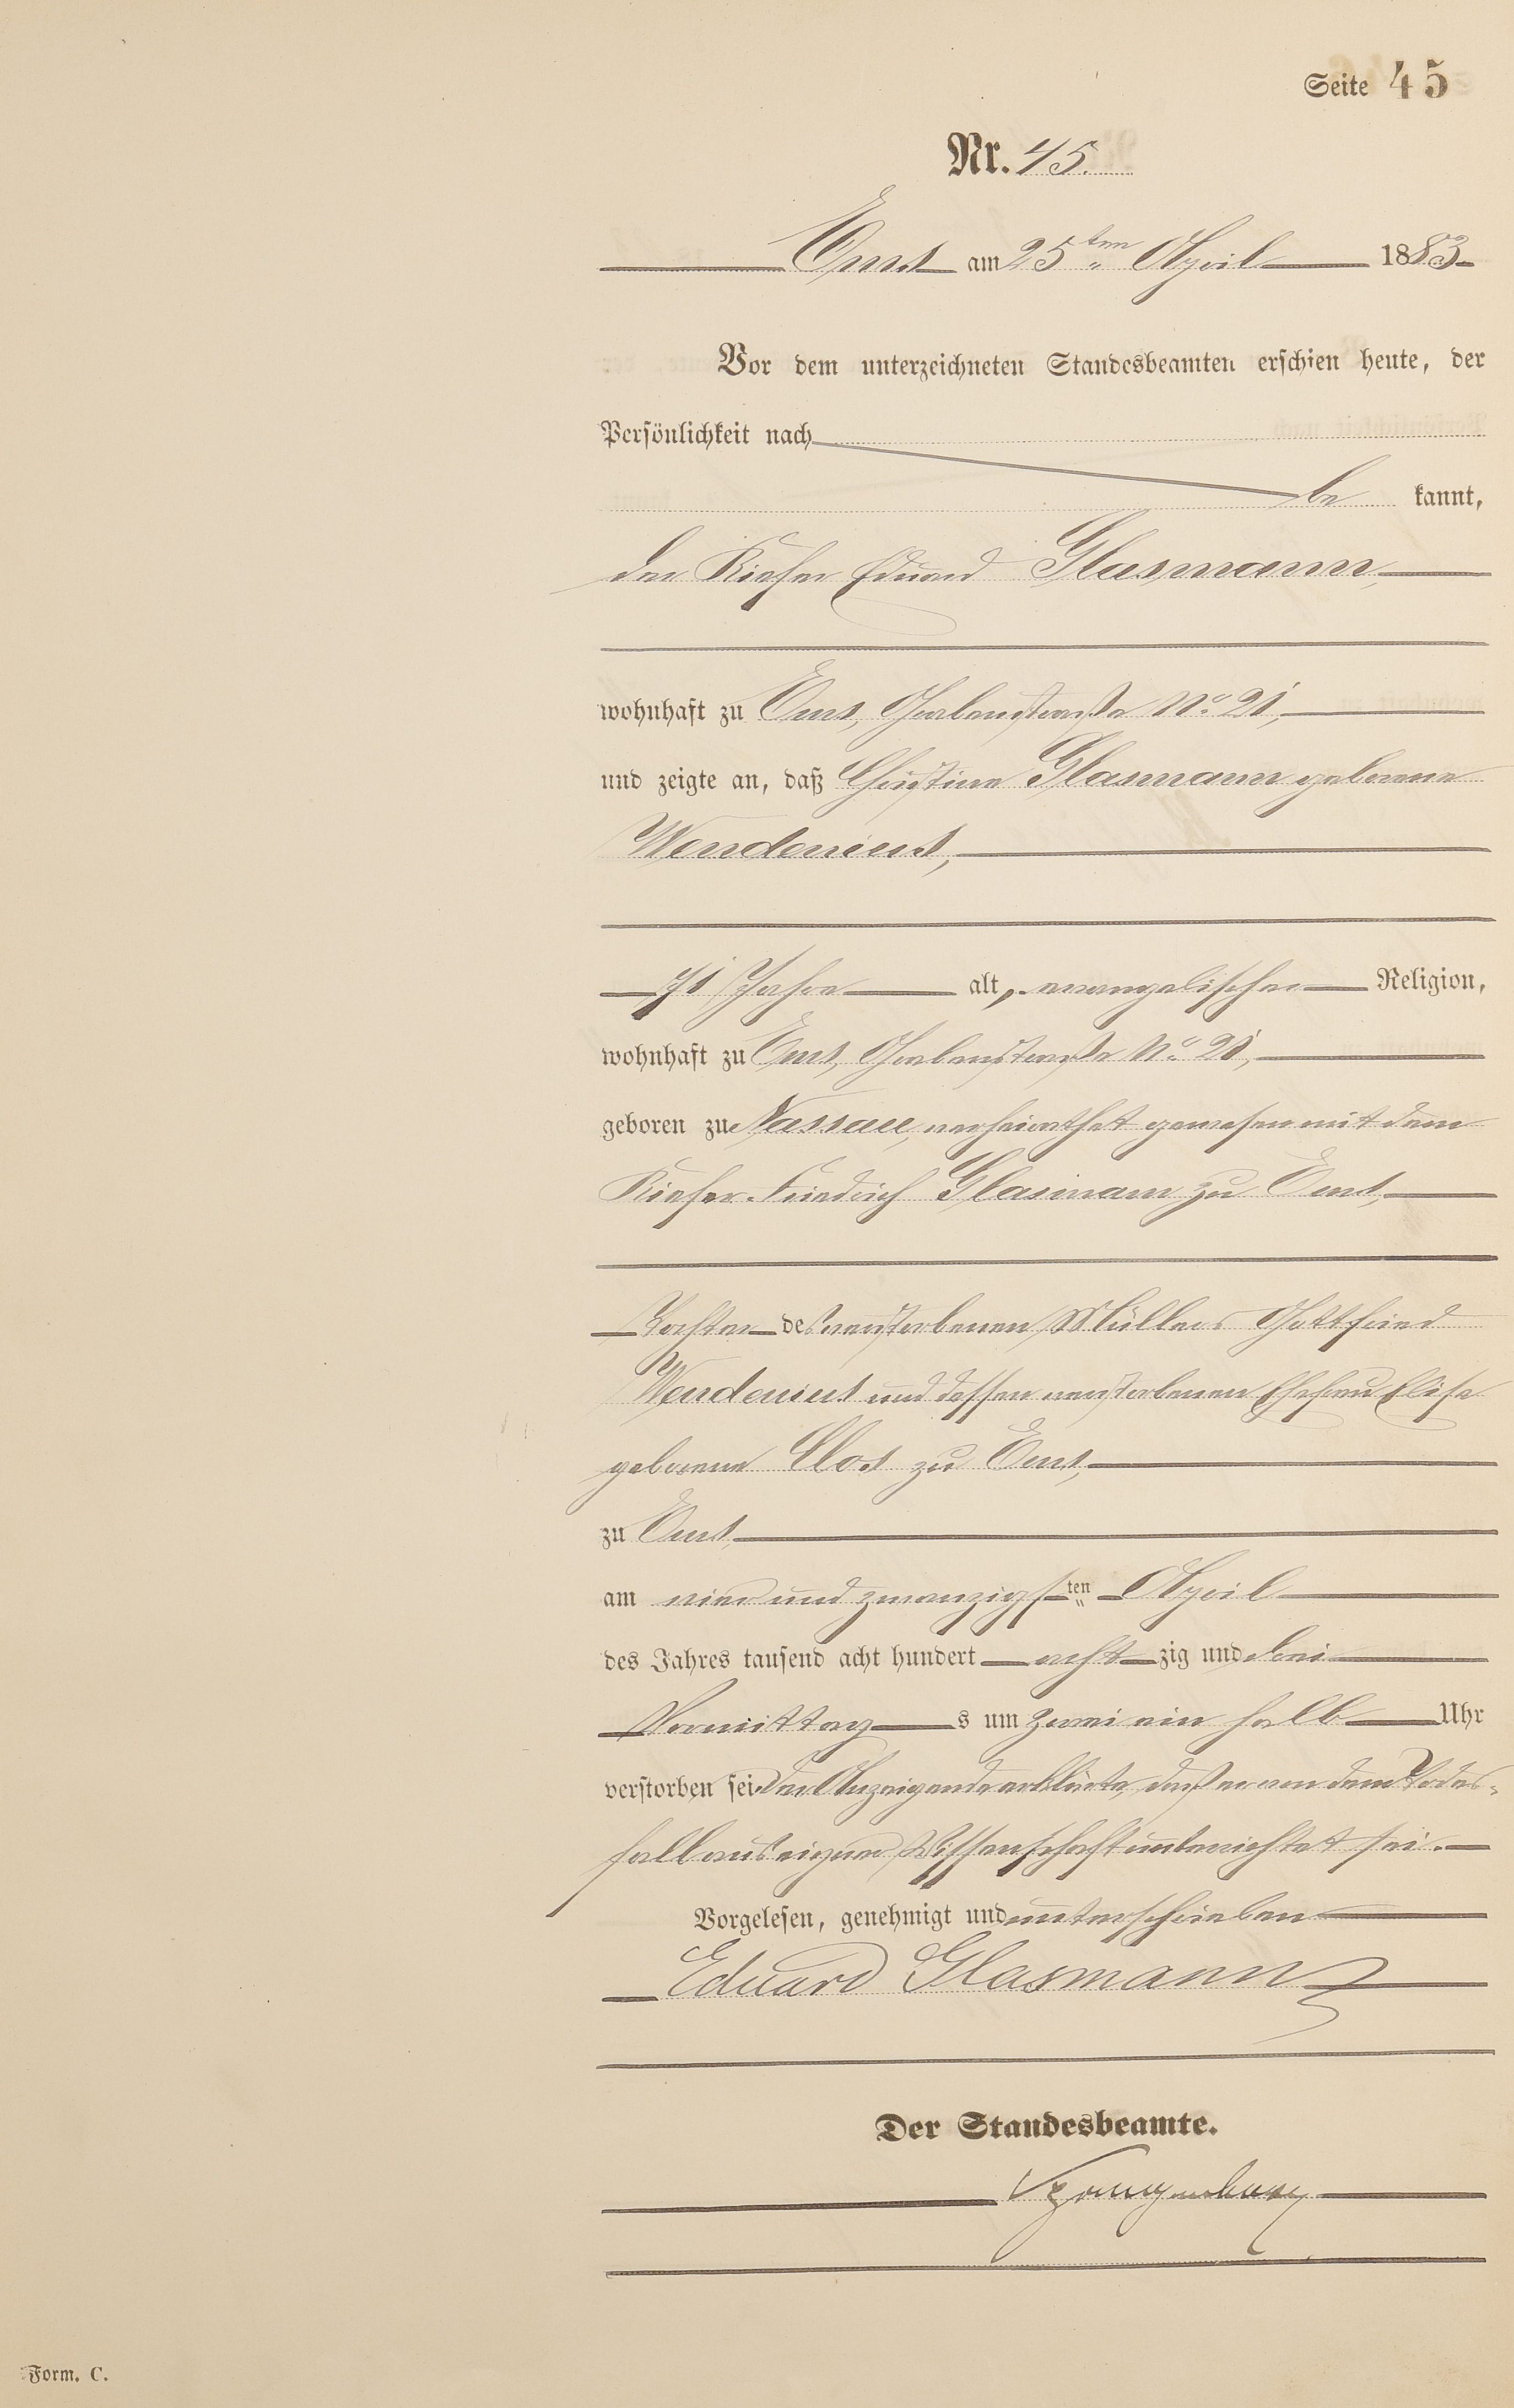 Seite 45
Nr. 45.
Ems am 25ten April 1883
Vor dem unterzeichneten Standesbeamten erschien heute, der
Persönlichkeit nach
be kannt,
der Kiefer Eduard Glasmann,
wohnhaft zu Ems, Grabenstraße No. 21,
und zeigte an, daß Christine Glasmann geborene
Wendenius,
71 Jahre alt, evangelischer Religion,
wohnhaft zu Ems, Grabenstraße No. 21,
geboren zu Nassau, verheirathet gewesen mit dem
Kiefer Friedrich Glasmann zu Ems,
Tochter des verstorbenen Müllers Gottfried
Wendenius und dessen verstorbenen Ehefrau Elise
geborene Clos zu Ems,
zu Ems,
am vier und zwanzigsten April
des Jahres tausend acht hundert acht zig und drei
Vormittag s um zwei ein halb Uhr
verstorben sei. Der Anzeigende erklärte, daß er von dem Todes-
fall aus eigener Wissenschaft unterrichtet sei.
Vorgelesen, genehmigt und unterschrieben
Eduard Glasmann
Der Standesbeamte.
Form. C.